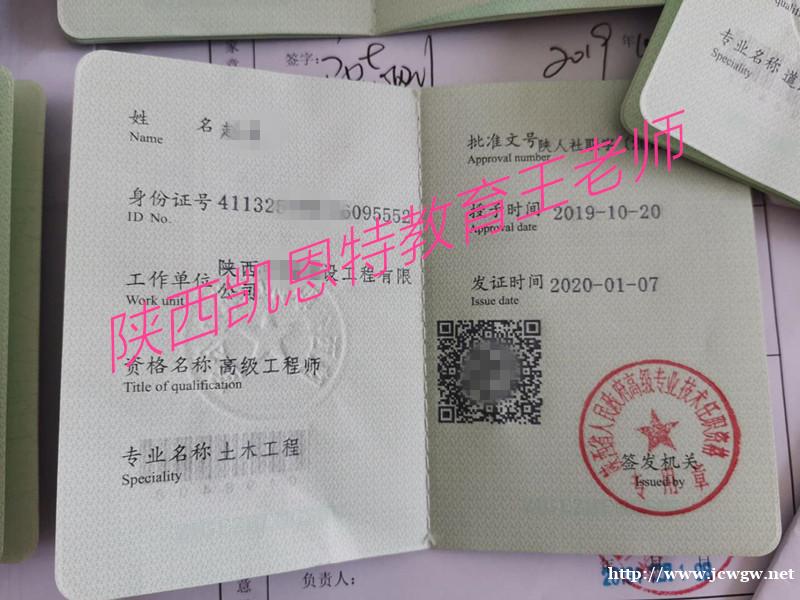 签字：
2019 年
专业名称 道
Speciality
姓 名 赵
Name
身份证号 411325 6095552
ID No.
工作单位 陕西 设工程有限
公司
Work unit
资格名称 高级工程师
Title of qualification
专业名称 土木工程
Speciality
批准文号 陕人社职字
Approval number
授予时间 2019-10-20
Approval date
发证时间 2020-01-07
Issue date
陕西省人民政府高级专业技术任职资格
专用章
签发机关
Issued by
陕西凯恩特教育王老师
意
负责人：
http://www.jcwgw.net